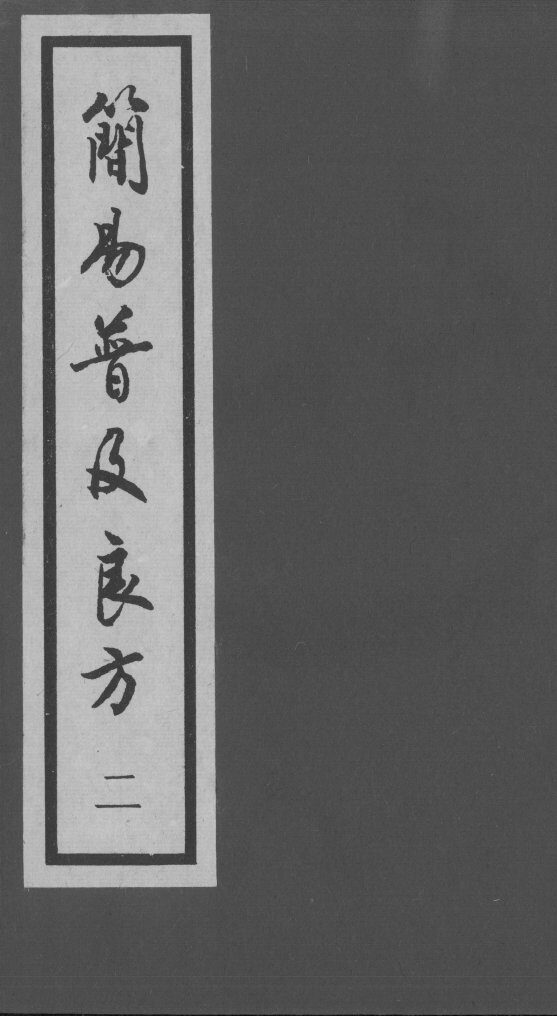 簡易普及良方 二